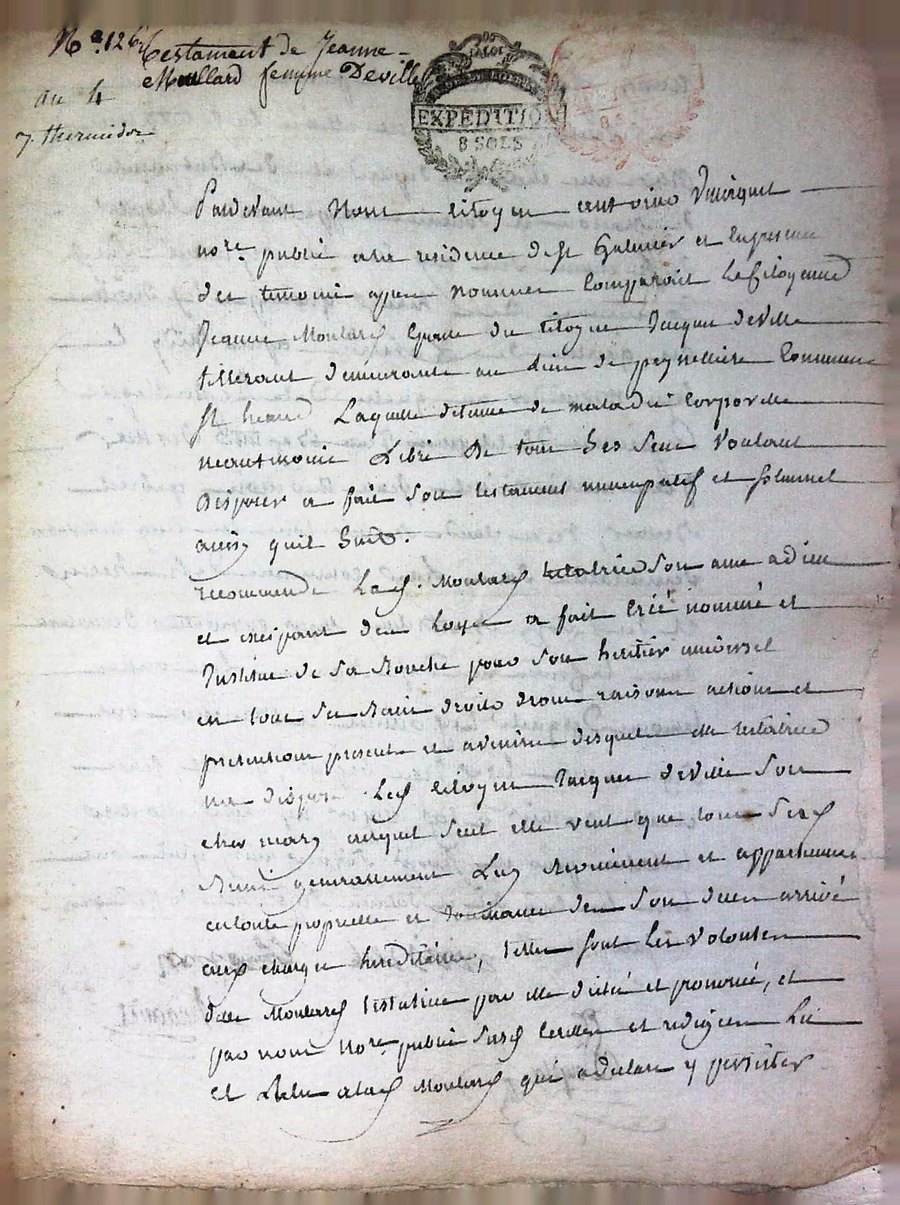 N.° 126
Testament de Jeanne
Moullard femme Deville
an 4
7. thermidor
EXPEDITION
8 SOLS
Pardevant Nous citoyen antoine
no.re public ala residence de st Galmier et en presence
des temoins apres nommes Comparoit La Citoyenne
Jeanne Moulard Epouse du citoyen Jacque deville
tisserant demeurante au lieu de peynelliere Commune
st heand Laquelle detenue de maladie Corporelle
neantmoins Libre de tous Ses sens Voulant
disposer a fait Son testament nuncupatif et solennel
ainsy quil Suit.
recommande La d. Moulard testatrice Son ame a dieu
et a fait Créé nommé et
Institué de Sa Bouche pour Son heritier universel
en tous Ses Biens droits noms raisons actions et
pretentions present et avenire desquels elle testatrice
na disposé Led citoyen Jacque deville Son
cher mary auquel seul elle veut que tous Sesd
Biens generallement Luy reviennent et appartiennent
en toute proprietté et jouissance des Son deces arrivé
aux charges hereditaire, telles sont Les volontés
de la Moulard testatrice par elle dicté et prononcé, et
par nous no.re public Susd et redigées Lu
et relu alad Moulard qui a declaré y persister